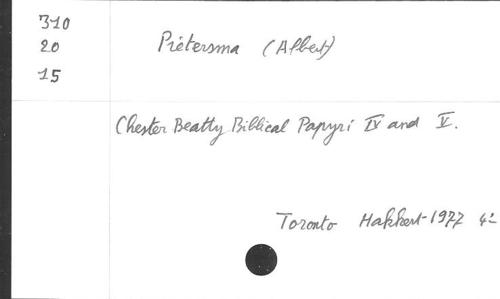 310
20
15
Piétersma (Albert)
Chester Beatty Biblical Papyri IV and V.
Toronto Hakkert-1977 4º